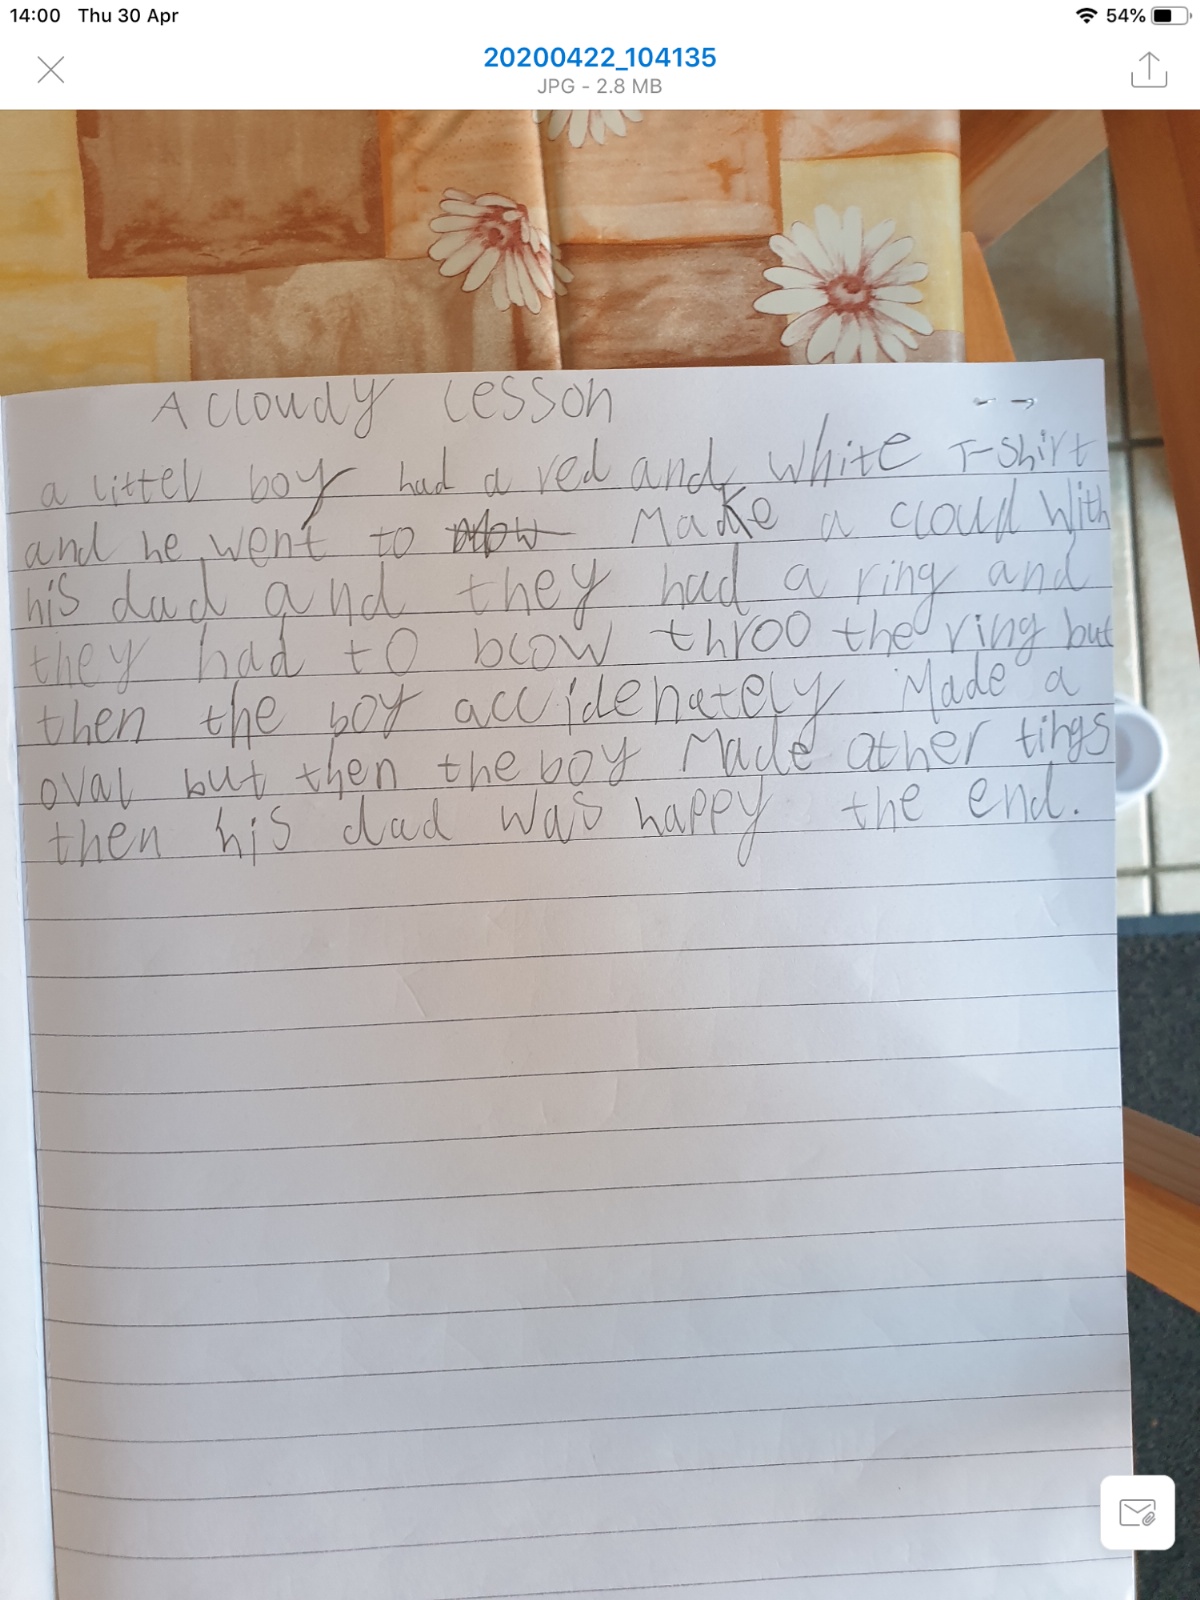 14:00 Thu 30 Apr
54%
20200422_104135
JPG - 2.8 MB
A cloudy lesson
a littel boy had a red and white T-shirt
and he went to Make a cloud With
his dad and they had a ring and
they had to blow throo the ring but
then the boy accidenately Made a
oval but then the boy Made other tings
then his dad was happy the end.